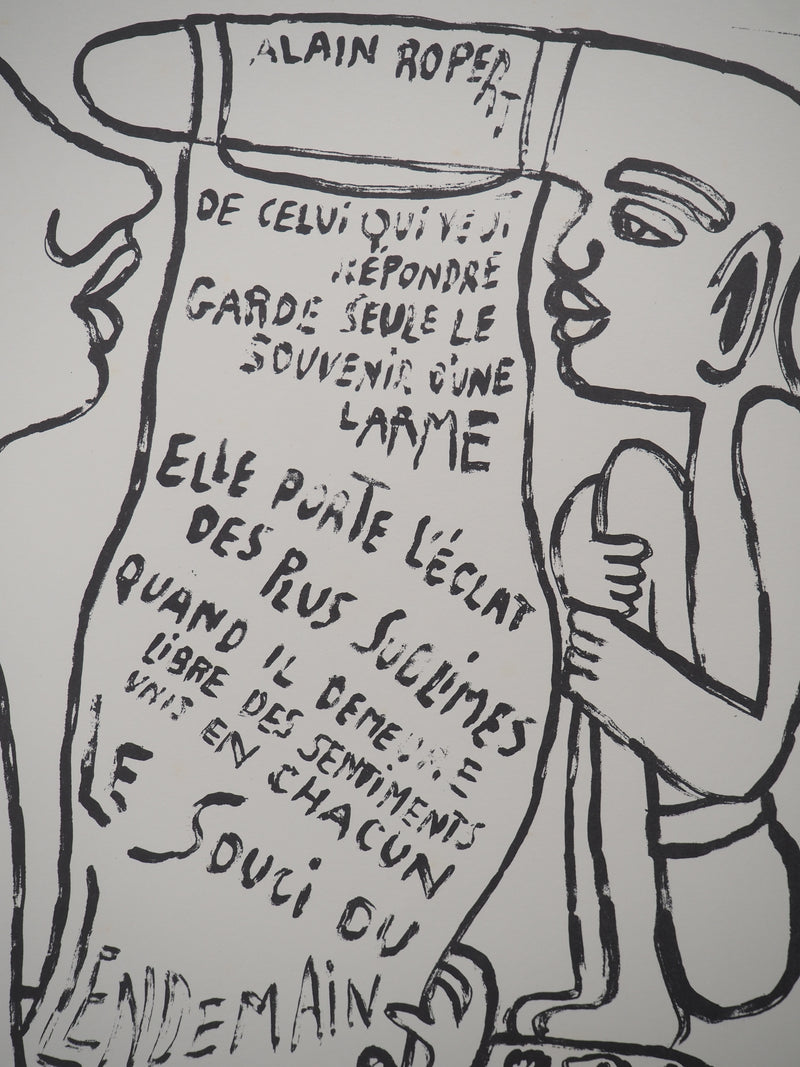 ALAIN ROPERT
DE CELUI QUI
RÉPONDRE
GARDE SEULE LE
SOUVENIR D'UNE
LARME
ELLE PORTE L'ÉCLAT
DES PLUS SUBLIMES
QUAND IL DEMEURE
LIBRE DES SENTIMENTS
UNIS EN CHACUN
LE SOUCI DU
LENDEMAIN